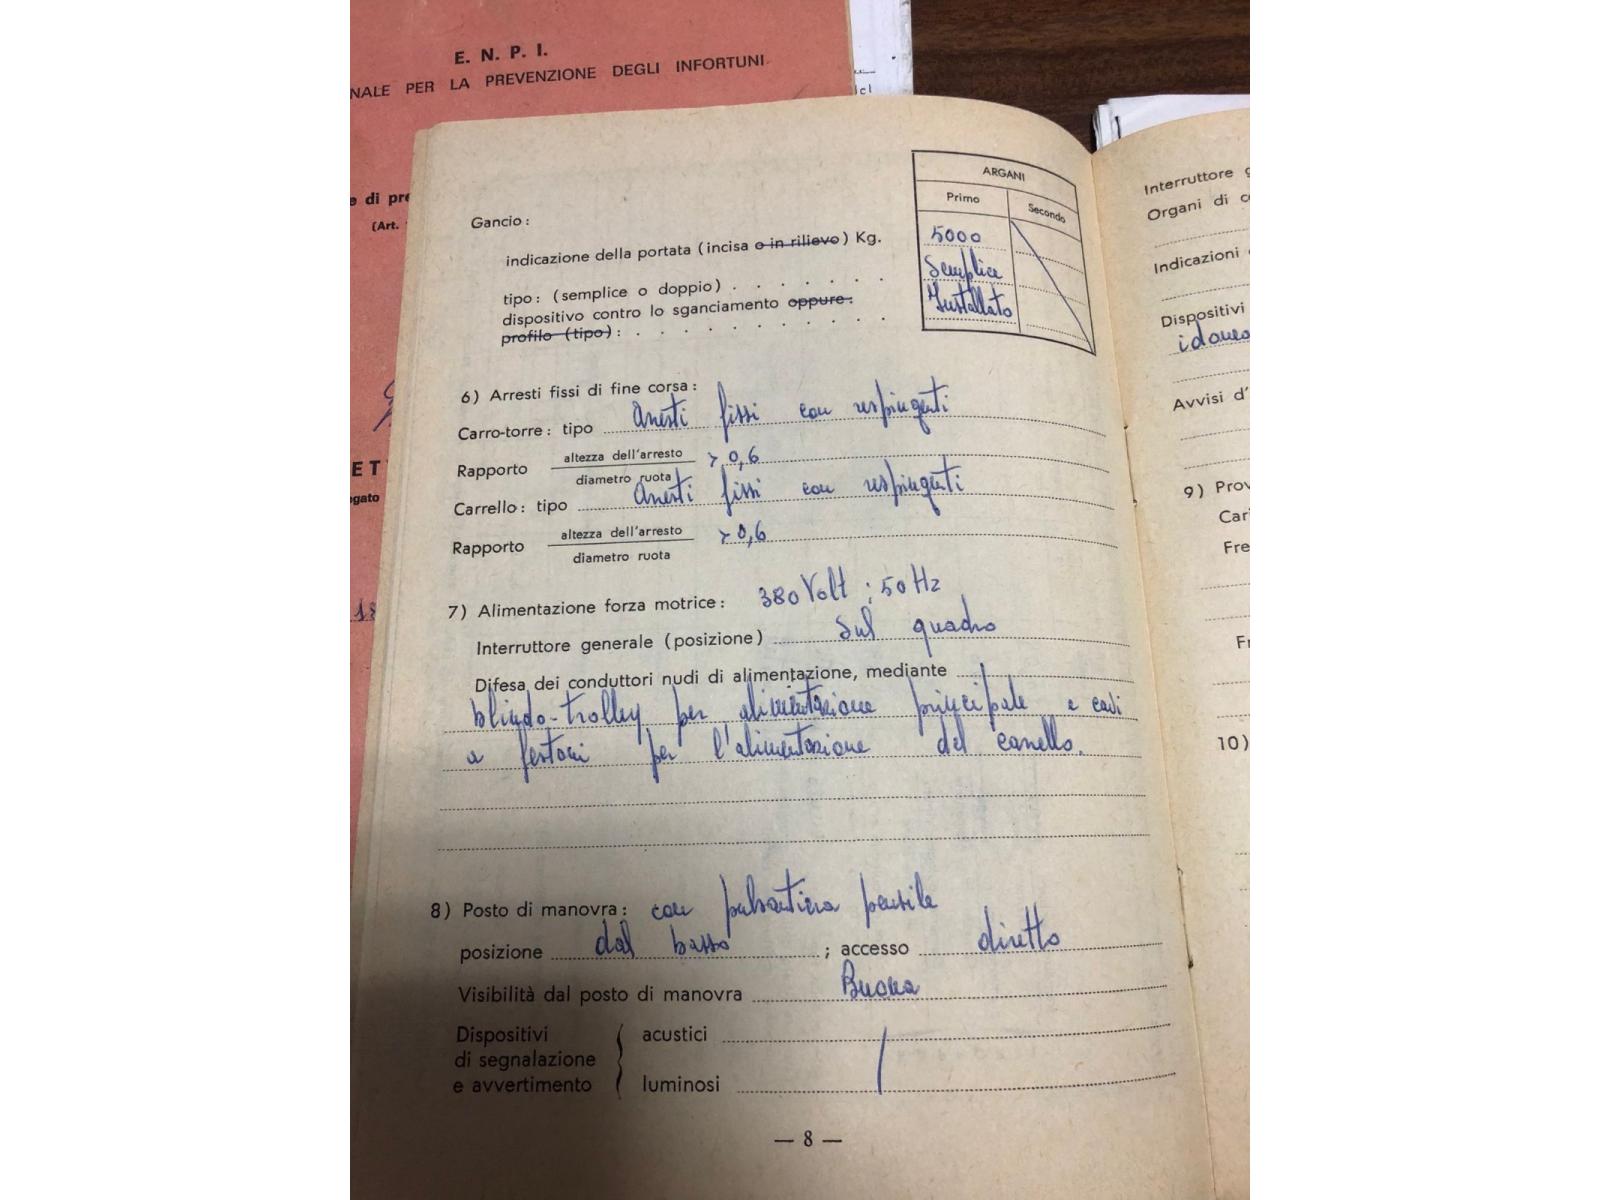 E. N. P. I.
NALE PER LA PREVENZIONE DEGLI INFORTUNI
e di pre
(Art.
ET
egato
18
ARGANI
Primo Secondo
Gancio:
indicazione della portata (incisa o in rilievo) Kg. 5000
tipo: (semplice o doppio) . . . . . . . Semplice
dispositivo contro lo sganciamento oppure:
profilo (tipo): . . . . . . . . . . . Installato
6) Arresti fissi di fine corsa:
Carro-torre: tipo Arresti fissi con respingenti
Rapporto altezza dell'arresto > 0,6
diametro ruota
Carrello: tipo Arresti fissi con respingenti
Rapporto altezza dell'arresto > 0,6
diametro ruota
7) Alimentazione forza motrice: 380 Volt ; 50 Hz
Interruttore generale (posizione) Sul quadro
Difesa dei conduttori nudi di alimentazione, mediante
blindo-trolley per alimentazione principale e cavi
a festoni per l'alimentazione del carrello.
8) Posto di manovra: con pulsantiera pensile
posizione dal basso ; accesso diretto
Visibilità dal posto di manovra Buona
Dispositivi acustici
di segnalazione
e avvertimento luminosi
— 8 —
Interruttore g
Organi di c
Indicazioni
Dispositivi
idoneo
Avvisi d'
9) Prov
Cari
Fre
Fr
10)